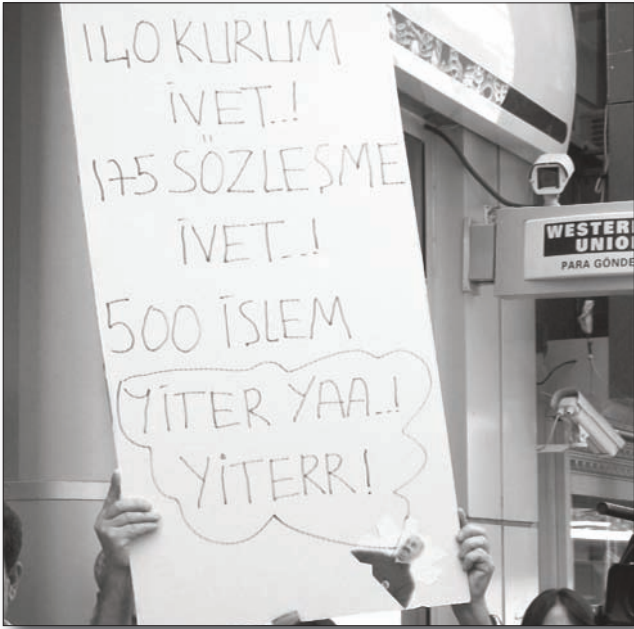 140 KURUM
İVET..!
175 SÖZLEŞME
İVET...!
500 İŞLEM
YİTER YAA..!
YİTERR!
WESTERN
UNIO
PARA GÖNDE